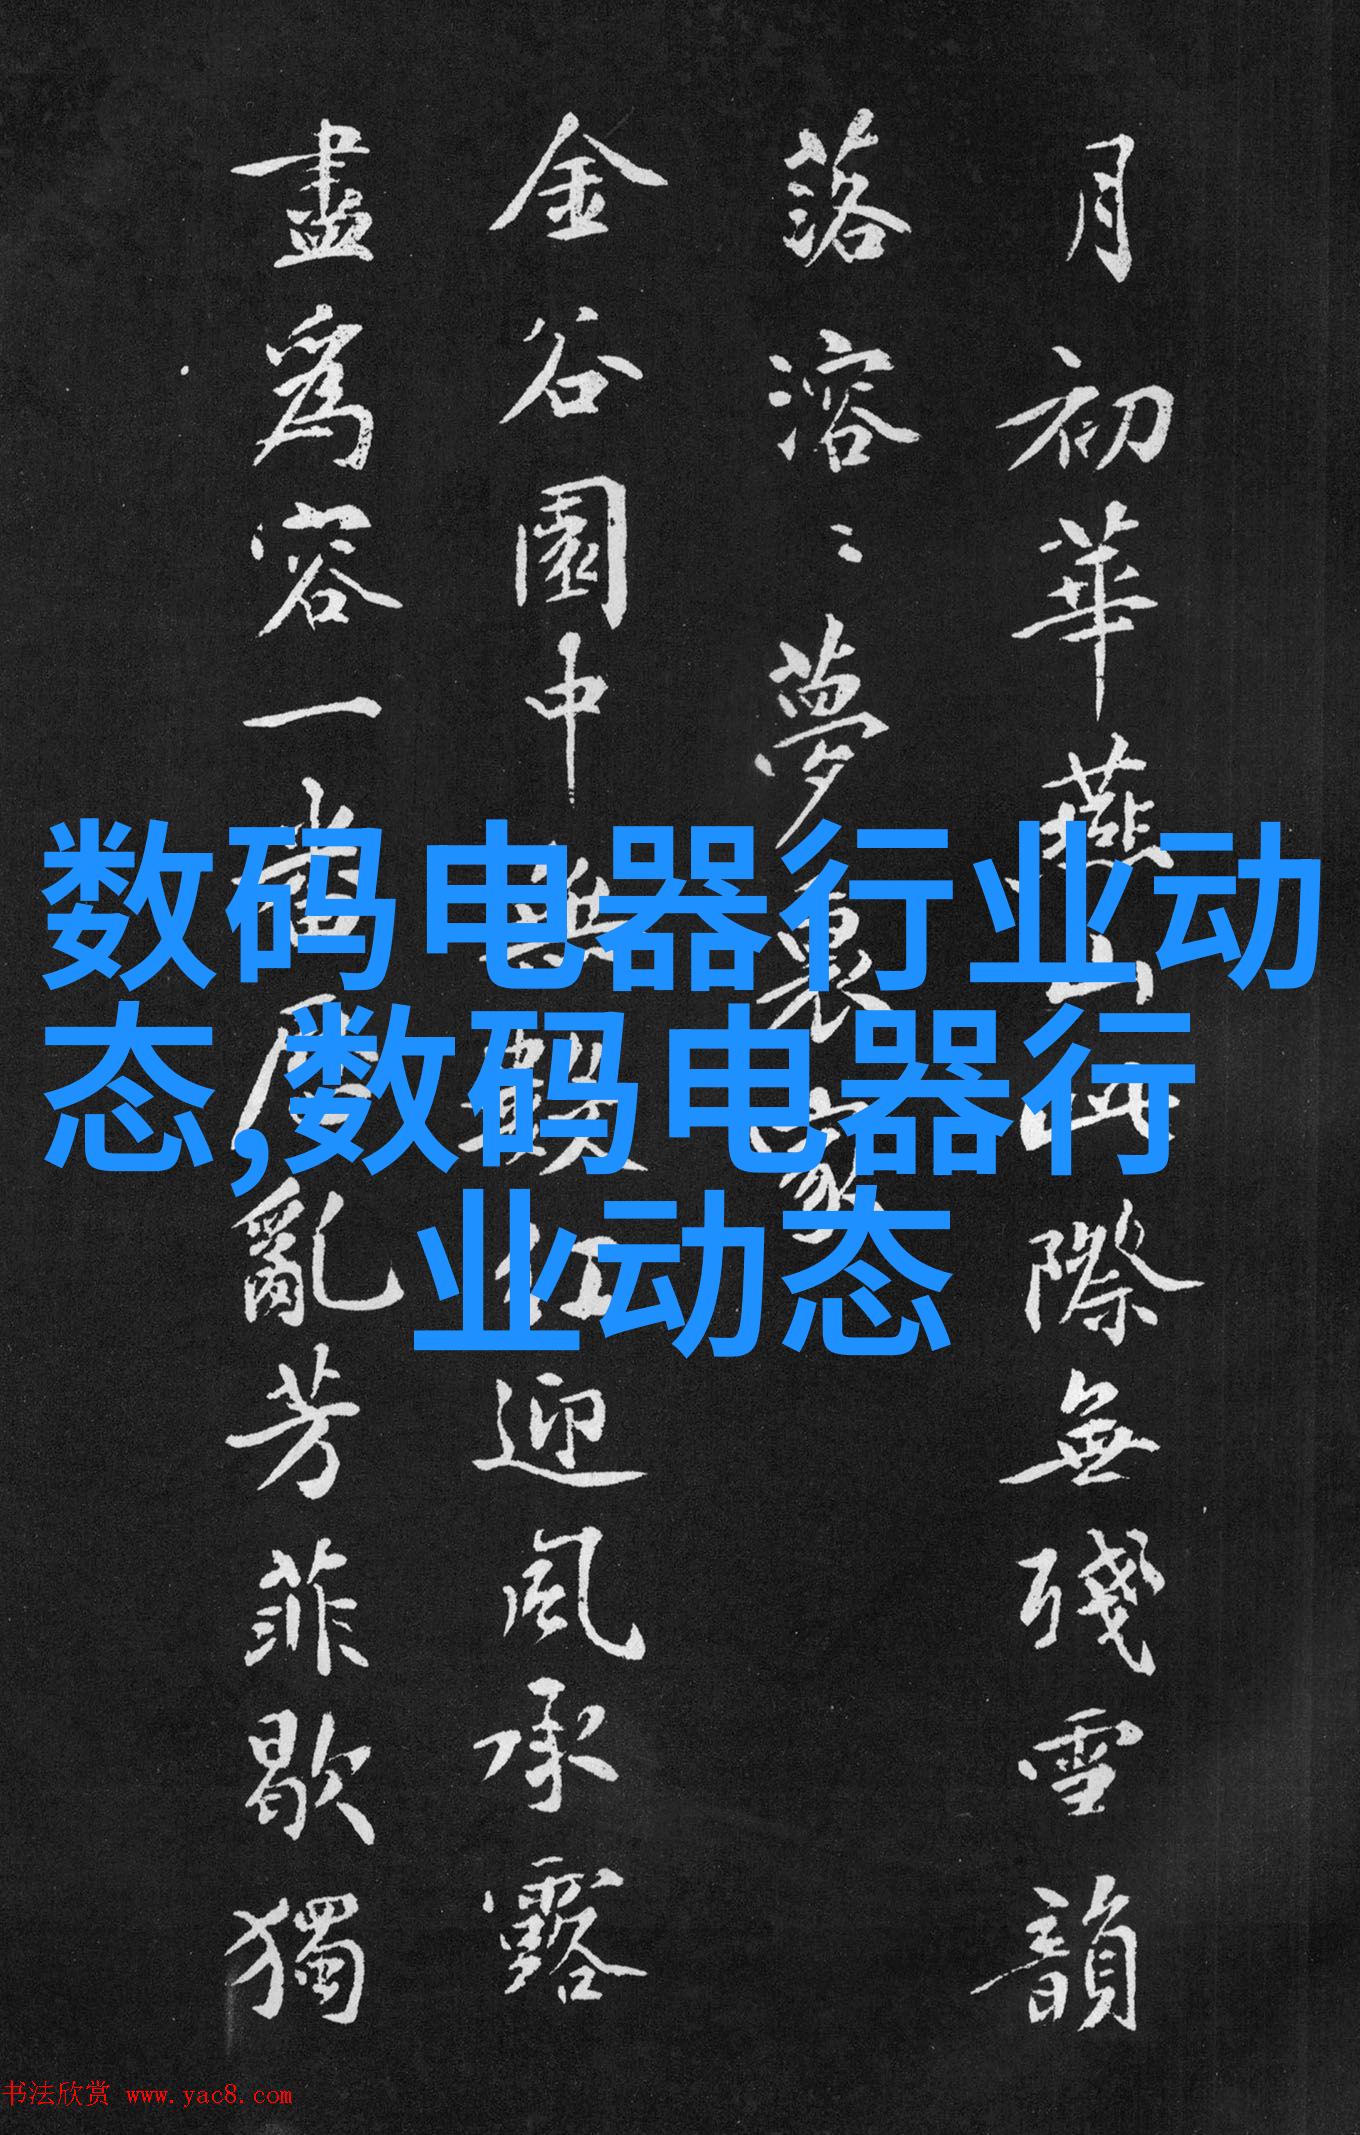 月初華燕山此際無殘雪韻
落溶〻夢裏家
金谷園中無紅迎風承露
盡為容一亂芳菲歇獨
数码电器行业动
态,数码电器行
业动态
书法欣赏 www.yac8.com